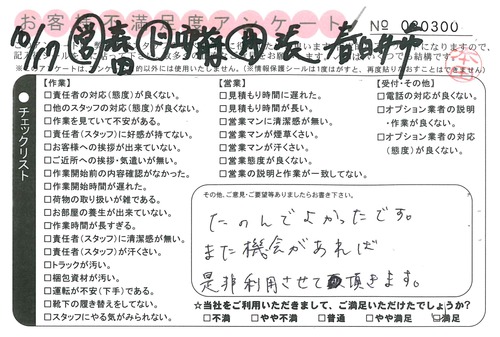 お客様不満足度アンケート
No 080300
10/17
【作業】
□責任者の対応(態度)が良くない。
□他のスタッフの対応(態度)が良くない。
□作業を見ていて不安がある。
□責任者(スタッフ)に好感が持てない。
□お客様への挨拶が出来ていない。
□ご近所への挨拶・気遣いが無い。
□作業開始前の内容確認がなかった。
□作業開始時間が遅れた。
□荷物の取り扱いが雑である。
□お部屋の養生が出来ていない。
□作業時間が長すぎる。
□責任者(スタッフ)に清潔感が無い。
□責任者(スタッフ)が汗くさい。
□トラックが汚い。
□梱包資材が汚い。
□運転が不安(下手)である。
□靴下の履き替えをしてない。
□スタッフにやる気がみられない。
【営業】
□見積もり時間に遅れた。
□見積もり時間が長い。
□営業マンに清潔感が無い。
□営業マンが煙草くさい。
□営業マンが汗くさい。
□営業態度が良くない。
□営業の説明と作業が一致してない。
【受付・その他】
□電話の対応が良くない。
□オプション業者の説明
・作業が良くない。
□オプション業者の対応
(態度)が良くない。
チェックリスト
その他、ご意見・ご要望等ありましたらお書き下さい。
たのんでよかったです。
また機会があれば
是非利用させて頂きます。
☆当社をご利用いただきまして、ご満足いただけたでしょうか?
□不満 □やや不満 □普通 □やや満足 □満足